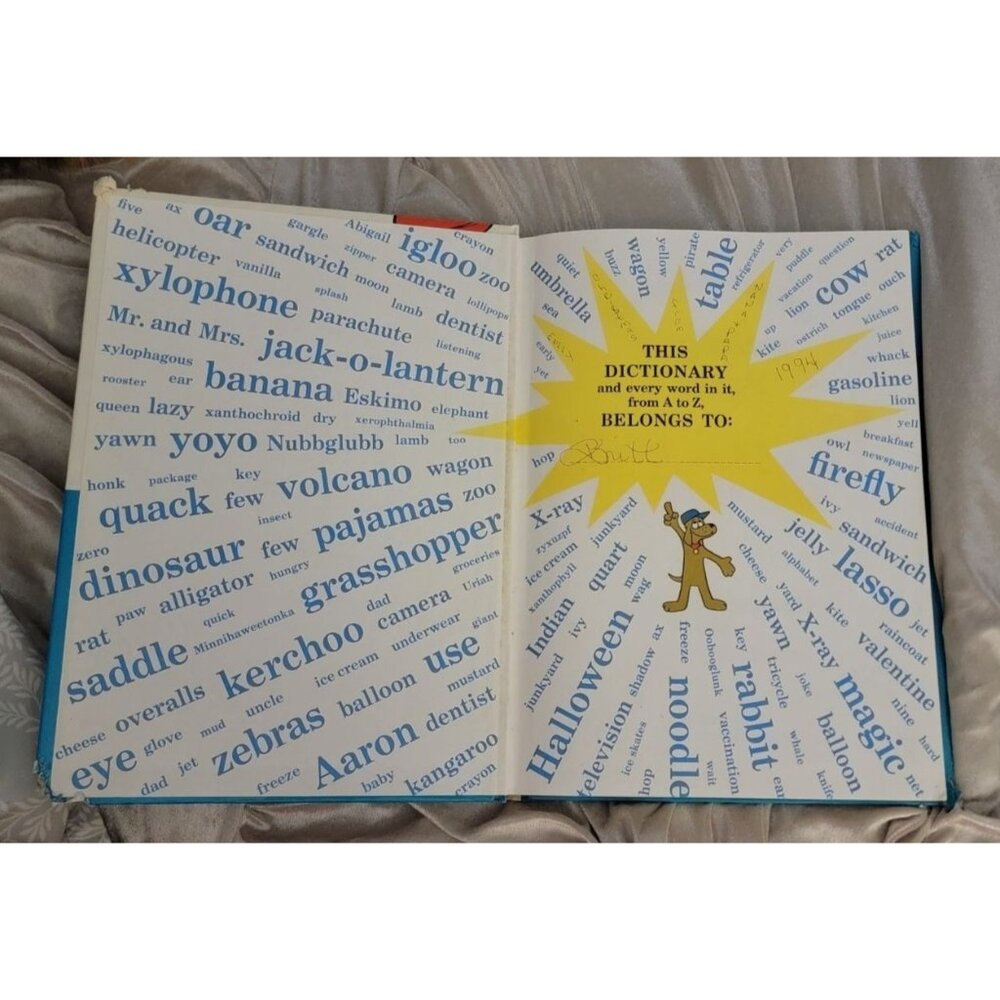 five ax oar gargle Abigail igloo crayon
helicopter sandwich zipper camera zoo
vanilla moon lollipops
xylophone splash lamb dentist
parachute listening
Mr. and Mrs. jack-o-lantern
xylophagous banana Eskimo elephant
rooster ear
queen lazy xanthochroid dry xerophthalmia
yawn yoyo Nubbglubb lamb too
honk package key volcano wagon
quack few pajamas zoo
insect
zero dinosaur few grasshopper
paw alligator hungry groceries
rat quick dad camera Uriah
saddle Minnihaweetonka kerchoo underwear giant
overalls uncle ice cream use
cheese glove mud zebras balloon mustard
eye jet Aaron dentist
dad freeze baby kangaroo
crayon
quiet buzz wagon yellow pirate table refrigerator very puddle question
umbrella vacation cow rat
sea lion tongue ouch
up kitchen
early kite ostrich juice
yet whack
EMILY
1994
THIS
DICTIONARY
and every word in it,
from A to Z,
BELONGS TO:
Britt
gasoline
lion
yell
breakfast
owl newspaper
hop firefly
X-ray junkyard mustard jelly ivy accident
zyxuzpf sandwich
ice cream quart moon cheese alphabet lasso
xanthophyll wag yard kite jet
Indian ivy yawn X-ray raincoat
junkyard Halloween shadow ax freeze Oobooglunk key tricycle joke magic valentine
television noodle rabbit nine
ice skates vaccination whale balloon hard
hop wait ear knife net